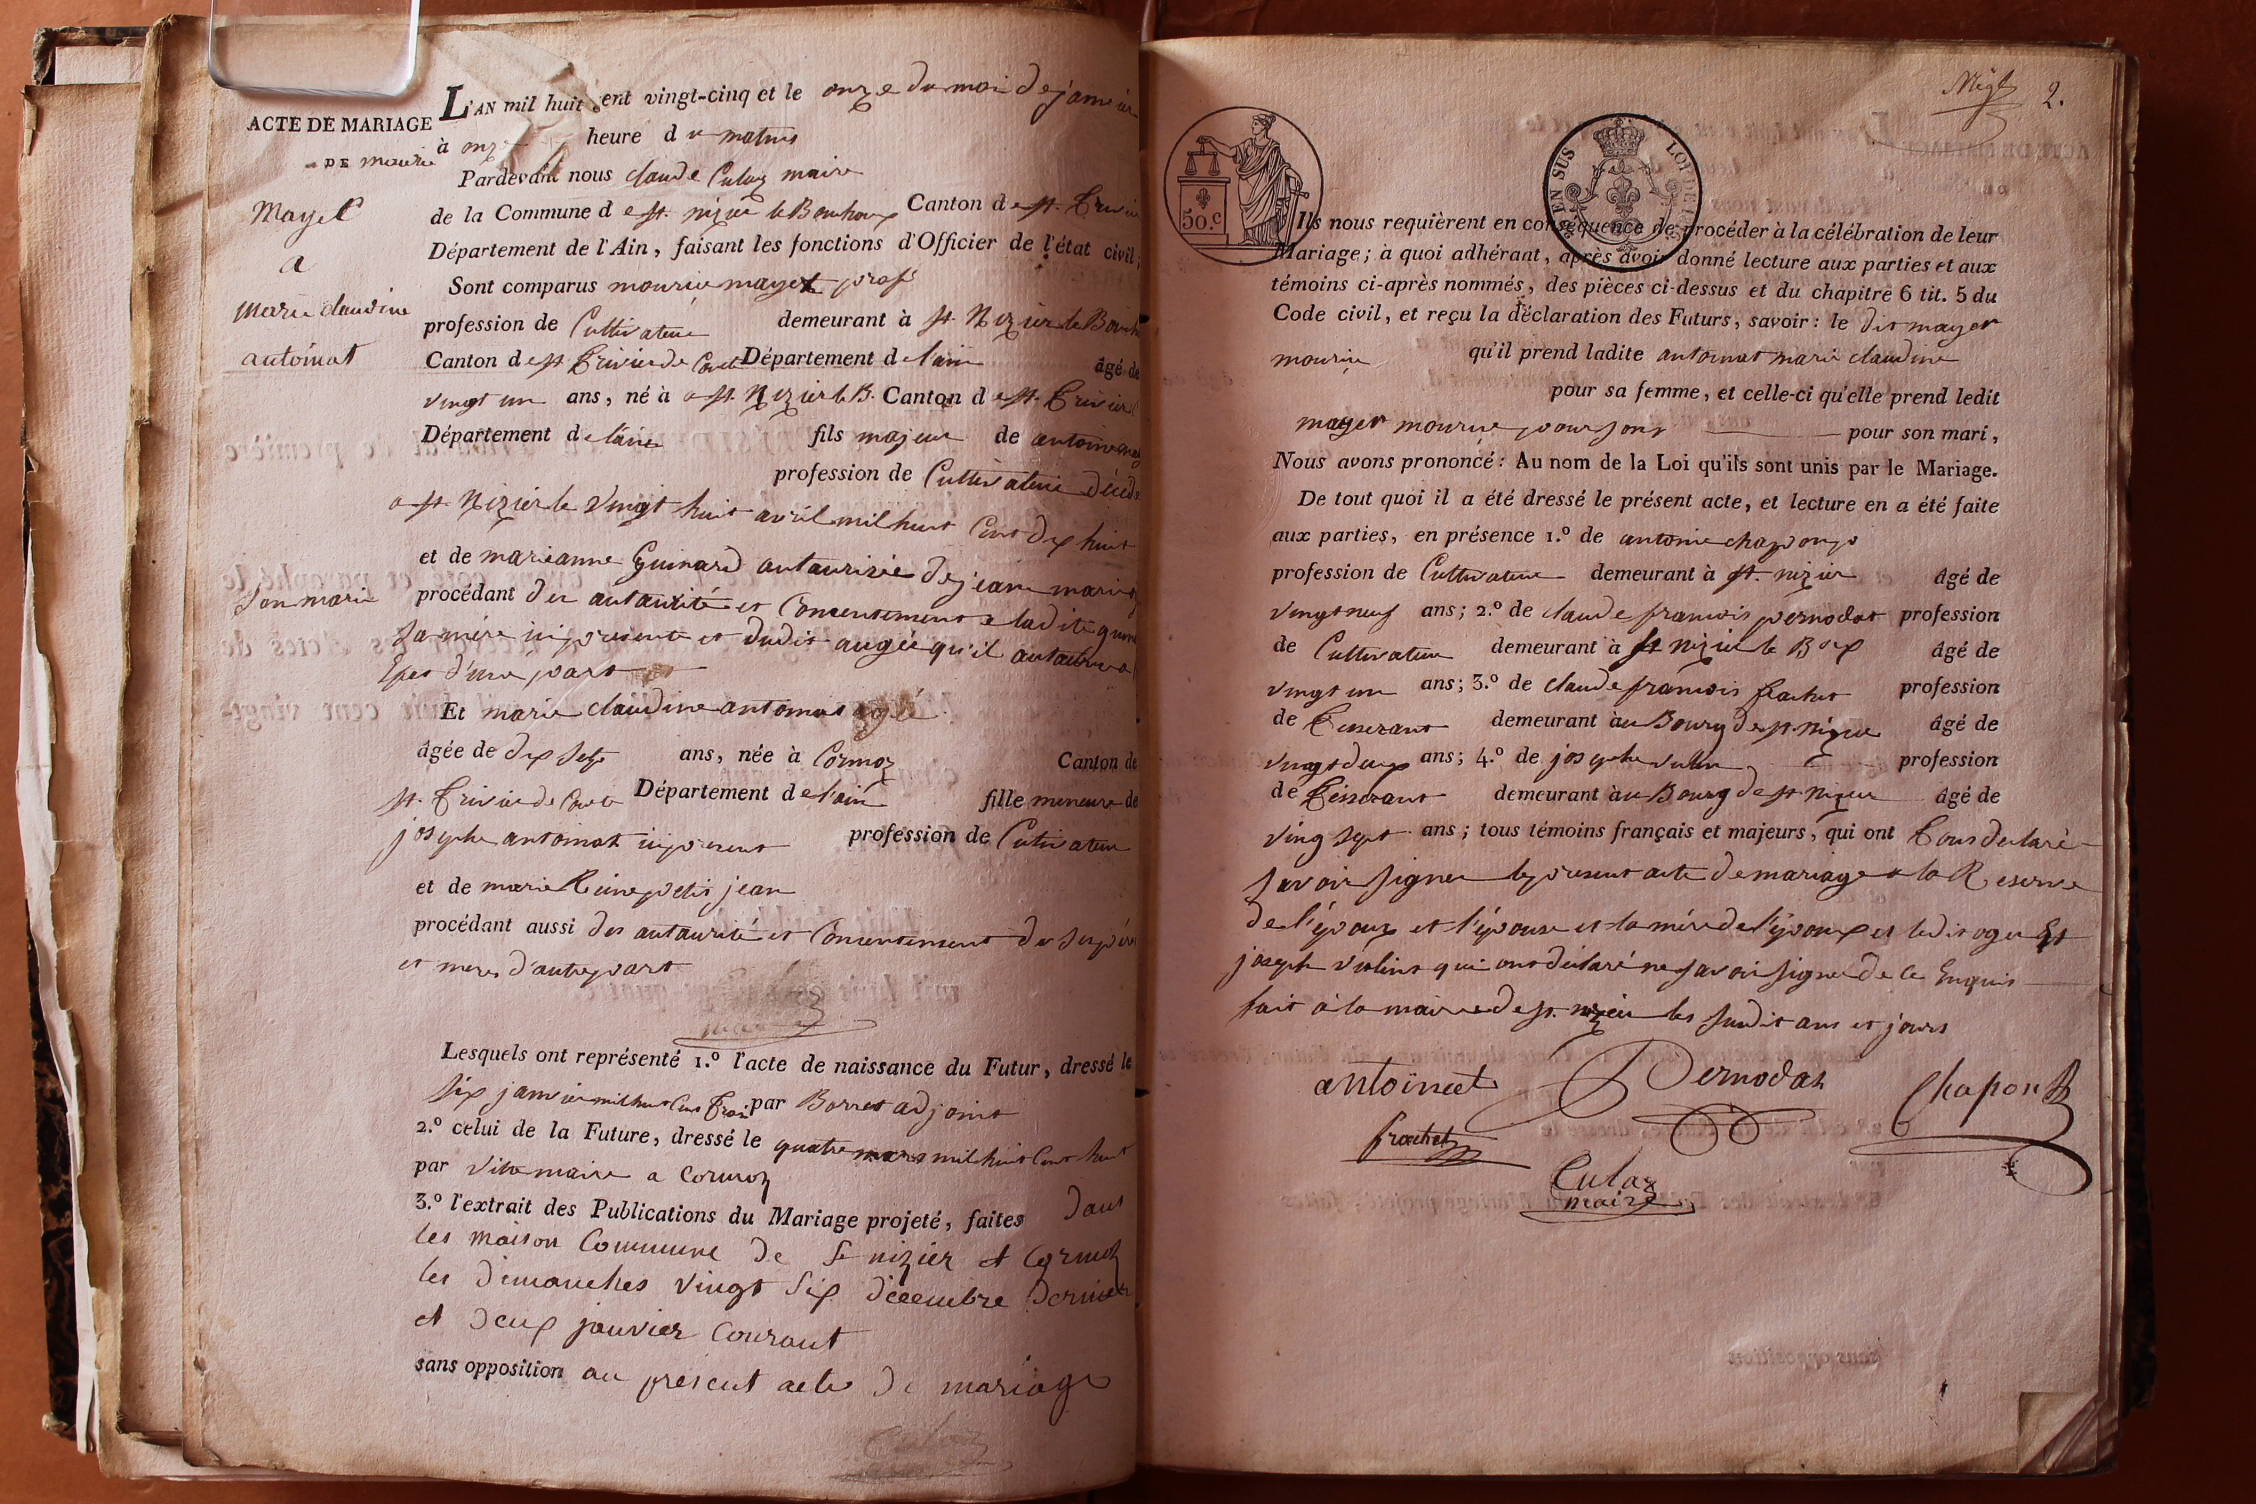 L'AN mil huit cent vingt-cinq et le onze du moi de janvier
ACTE DE MARIAGE
à onze heure du matins
DE mourie
Pardevant nous claude Culaz maire
Mayet
de la Commune de st. nizier le Bouhoux Canton de st. Trivie
Département de l'Ain, faisant les fonctions d'Officier de l'état civil;
a
Sont comparus mourie mayet prof
marie claudine
profession de Cultivateur demeurant à st. Nizier le Bouh
automat
Canton de st Trivier de Courte Département de l'ain âgé de
vingt un ans, né à st. Nizier le B. Canton de st. Trivier
Département de l'ain fils majeur de antoine may
profession de Cultivateur décédé
a st. Nizier le vingt huit avril mil huit Cent dix huit
et de marianne Guinard autaurizée de jean marie
son mari
procédant de autaurité et Consentement a ladite guin
sa mère ici presente et dudit augée qu'il autaurise
d'une part
Et marie claudine antomat
âgée de dix sept ans, née à Cormoz Canton de
st. Trivier de Courte Département de l'ain fille mineure de
josephe antomat ici present profession de Cultivateur
et de marie Reine petit jean
procédant aussi des autaurité et Consentement de ses père
et mere d'autre part
Lesquels ont représenté 1.º l'acte de naissance du Futur, dressé le
six janvier mil huit Cent trois par Borret adjoint
2.º celui de la Future, dressé le quatre mars mil huit Cent huit
par vite maire a Cormoz
3.º l'extrait des Publications du Mariage projeté, faites dans
les maison Commune de st nizier et Cormoz
les dimanches vingt six décembre dernier
et deux janvier Courant
sans opposition au présent acte de mariage
2.
50.c
EN SUS LOI DE
Ils nous requièrent en conséquence de procéder à la célébration de leur
Mariage; à quoi adhérant, après avoir donné lecture aux parties et aux
témoins ci-après nommés, des pièces ci-dessus et du chapitre 6 tit. 5 du
Code civil, et reçu la déclaration des Futurs, savoir: le dit mayet
mourie qu'il prend ladite antomat marie claudine
pour sa femme, et celle-ci qu'elle prend ledit
mayet mourie pour son pour son mari,
Nous avons prononcé: Au nom de la Loi qu'ils sont unis par le Mariage.
De tout quoi il a été dressé le présent acte, et lecture en a été faite
aux parties, en présence 1.º de antoine chapong
profession de Cultivateur demeurant à st. nizier âgé de
vingt neuf ans; 2.º de claude francois pernodat profession
de Cultivateur demeurant à st nizier le Boux âgé de
vingt un ans; 3.º de claude francois frachet profession
de tisserant demeurant au Bourg de st. nizier âgé de
vingt deux ans; 4.º de josephe vulin profession
de tisserant demeurant au Bourg de st nizier âgé de
ving sept ans; tous témoins français et majeurs, qui ont tous declaré
savoir signer le present acte de mariage a la Reserve
de l'époux et l'épouse et la mère de l'époux et ledit oger Et
joseph violins qui ont déclaré ne savoir signer de ce Enquis
fait à la mairie de st. nizier les susdit ans et jours
antoinat Pernodat Chapon
frachet
Culaz
maire